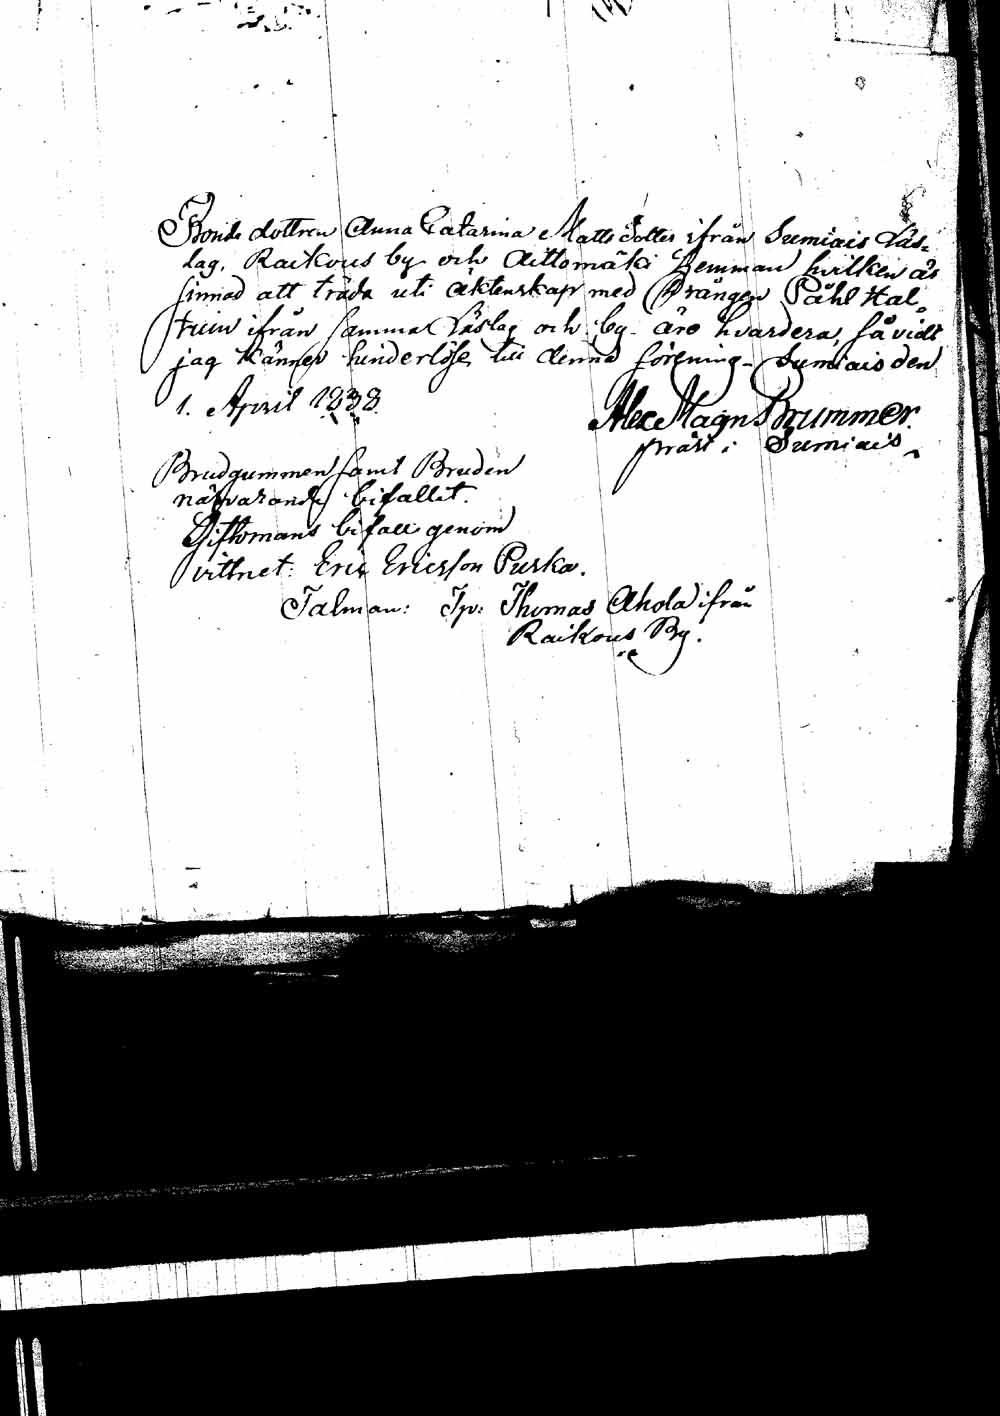 Bonde dottren Anna Catarina Matts dotter ifrån Sumiais Läs-
lag, Raikous by och Aittomäki Hemman hvilken är
sinnad att träda uti äktenskap med Drängen Påhl Hal-
truin ifrån samma Läslag och by äro hvardera, så vidt
jag känner hinderlöse till denna förening. Sumiais den
1. April 1838.
Alex Magn Brummer.
präst i Sumiais
Brudgummen samt Bruden
närvarande bifallit.
Giftomans bifall genom
vittnet: Eric Ericsson Purka.
Talman: Thomas Ahola ifrån
Raikous By.